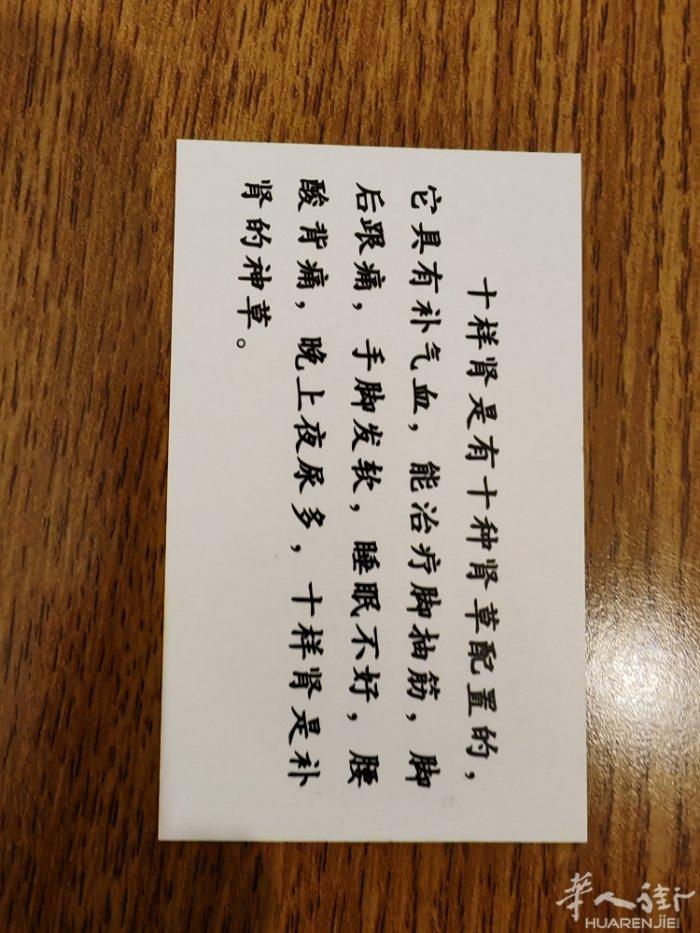 十样肾是有十种肾草配置的，
它具有补气血，能治疗脚抽筋，脚
后跟痛，手脚发软，睡眠不好，腰
酸背痛，晚上夜尿多，十样肾是补
肾的神草。
華人街
HUARENJIE